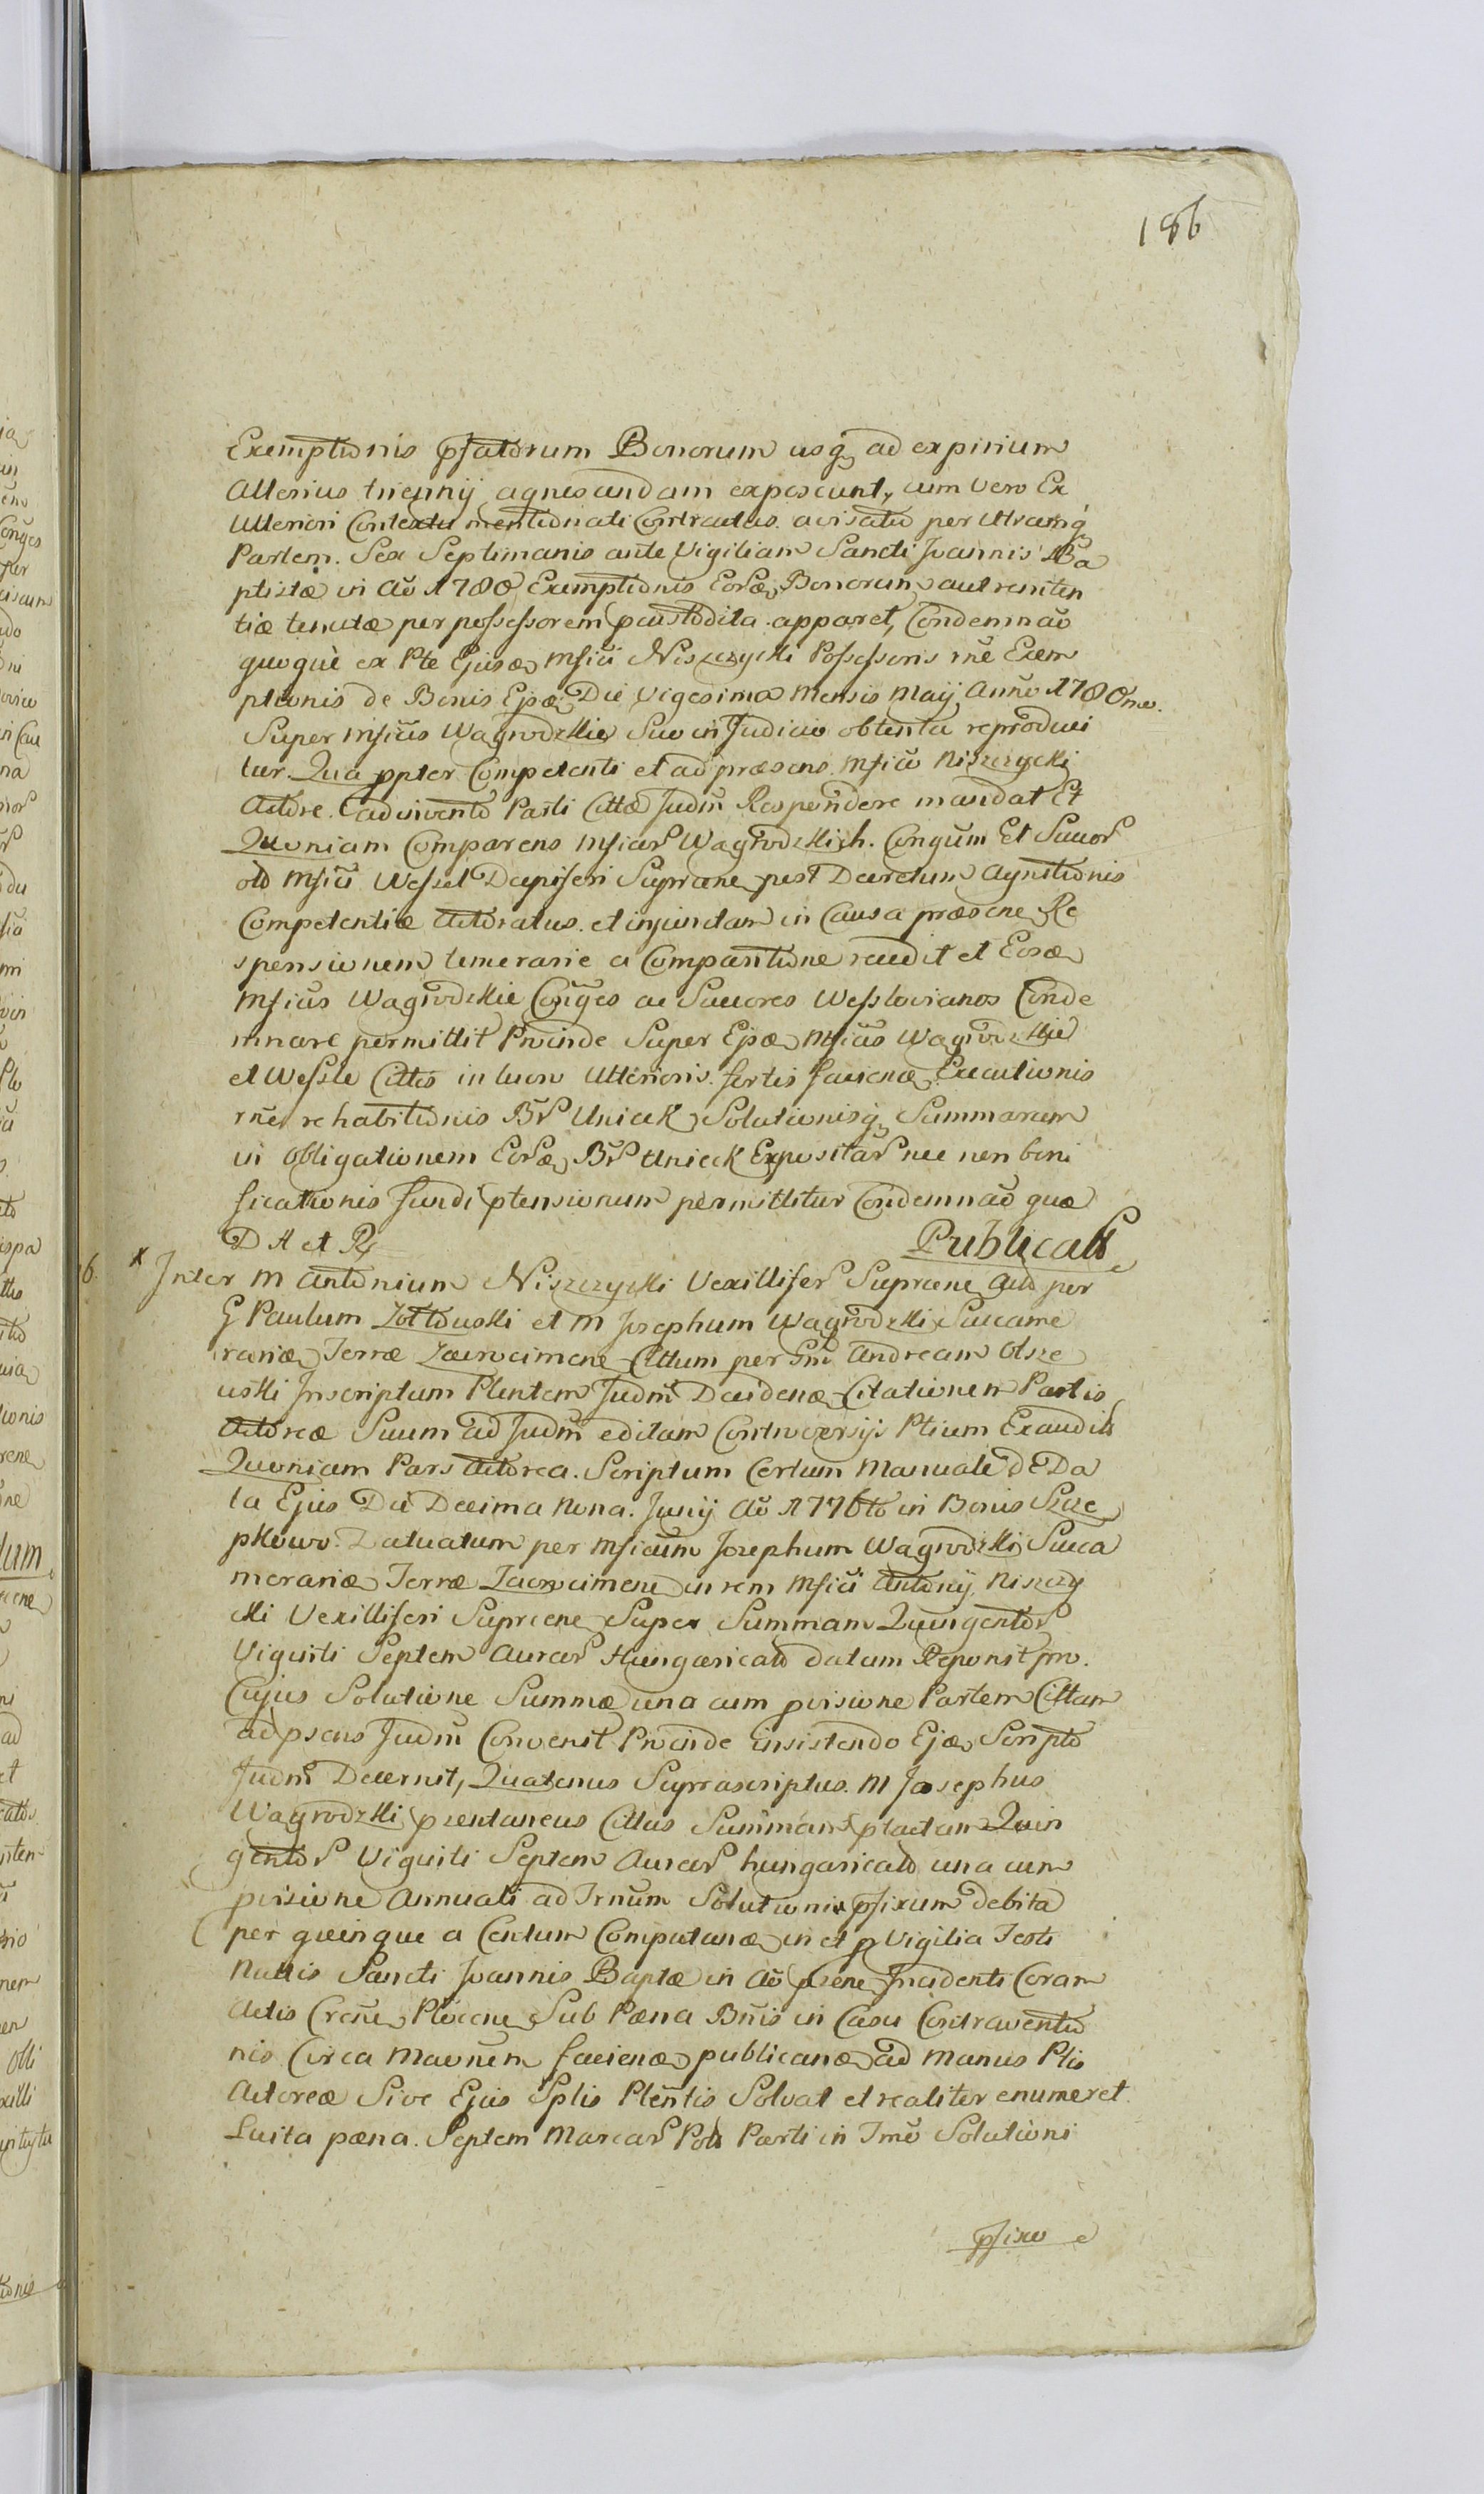 186
Exemptionis pfatorum Bonorum usq ad expirium
Alterius triennij agnosandam exposcunt, cum vero Ex
Ulteriori Contextu mentionati Contractus avisatio per Utramq
Partem Sex Septimanis ante Vigiliam Sancti Joannis Ba
ptistæ in Aõ 1780 Exemptionis Eorõæ Bonorum aut reniten
tiæ tenutæ per possessorem pcustodita apparet, Condemnaõ
quoquè ex Pte Ejusæ Mfici Niszczycki Possessoris rñe Exem
ptionis de Bonis Ejsæ Die Vigesima Mensis Maij Anno 1780mo.
Super Mficos Wagrodzkie Suo in Judicio obtenta reproduci
tur. Qua ppter Competenti et ad præsens Mfico Niszczycki
Actore adinvento Parti Cittæ Judm Respondere mandat Et
Quoniam Comparens Mficor Wagrodzkich Congum Et Succor
olò Mfici Wessel Dapiferi Suprone post Decretum Agnitionis
Competentiæ Actoratus et injunctam in Causa præsene Re
sponsionem temerarie a Comparitione recedit et Eosæ
Mficos Wagrodzkie Conges ac Succores Wesslovianos Conde
mnare permittit Proinde Super Ejsæ Mficos Wagrodzkie
et Wessle Cittos in lucro Ulterioris fortis facienæ Executionis
rñe rehabitionis Br Unieck Solutionisq Summarum
in Obligationem Eorõæ Br Unieck Expositar nec non boni
ficationis fundi ptensionum permittitur Condemnaõ quæ
D A et R
Publicatt
6. x Inter M Antonium Niszczycki Vexillifer Supræne Act per
G Paulum Zołtowski et M Josephum Wagrodzki Succame
rariæ Terræ Zacrocimene Cittum per Gm Andream Olsze
wski Inscriptum Plentem Judm Decidenæ Citationem Partis
Actoreæ Suum ad Judm editam Controversijs Ptium Exauditis
Quoniam Pars Actorea Scriptum Certum Manuale de Da
ta Ejus Die Decima Nona Junij Aõ 1776to in Bonis Szcze
pkowo Datuatum per Mficum Josephum Wagrodzki Succa
merariæ Terræ Zacrocimene in rem Mfici Antonij Niszczy
cki Vexilliferi Supræne Super Summam Quingentor
Viginti Septem Aurear Hungaricalò datum Reponit pro
Cujus Solutione Summæ una cum pvisione Partem Cittam
ad psens Judm Convenit Proinde insistendo Ejsæ Scripto
Judm Decernit, Quatenus Suprascriptus M Josephus
Wagrodzki præntaneus Cittus Summam ptactam Quin
gentor Viginti Septem Aurear hungaricalò una cum
pvisione Annuali ad Trnum Solutionis pfixum debita
per quinque a Centum Computanæ in et p Vigilia Festi
Nattis Sancti Joannis Baptæ in Aõ psene Incidenti Coram
Actis Crene Plocene Sub Pæna Bnis in Casu Contraventio
nis Circa Maonem facienæ publicanæ ad Manus Ptis
Actoreæ Sive Ejus Splis Plentis Solvat et realiter enumeret
Luita pæna Septem Marcar Pol Parti in Trno Solutioni
pfixo